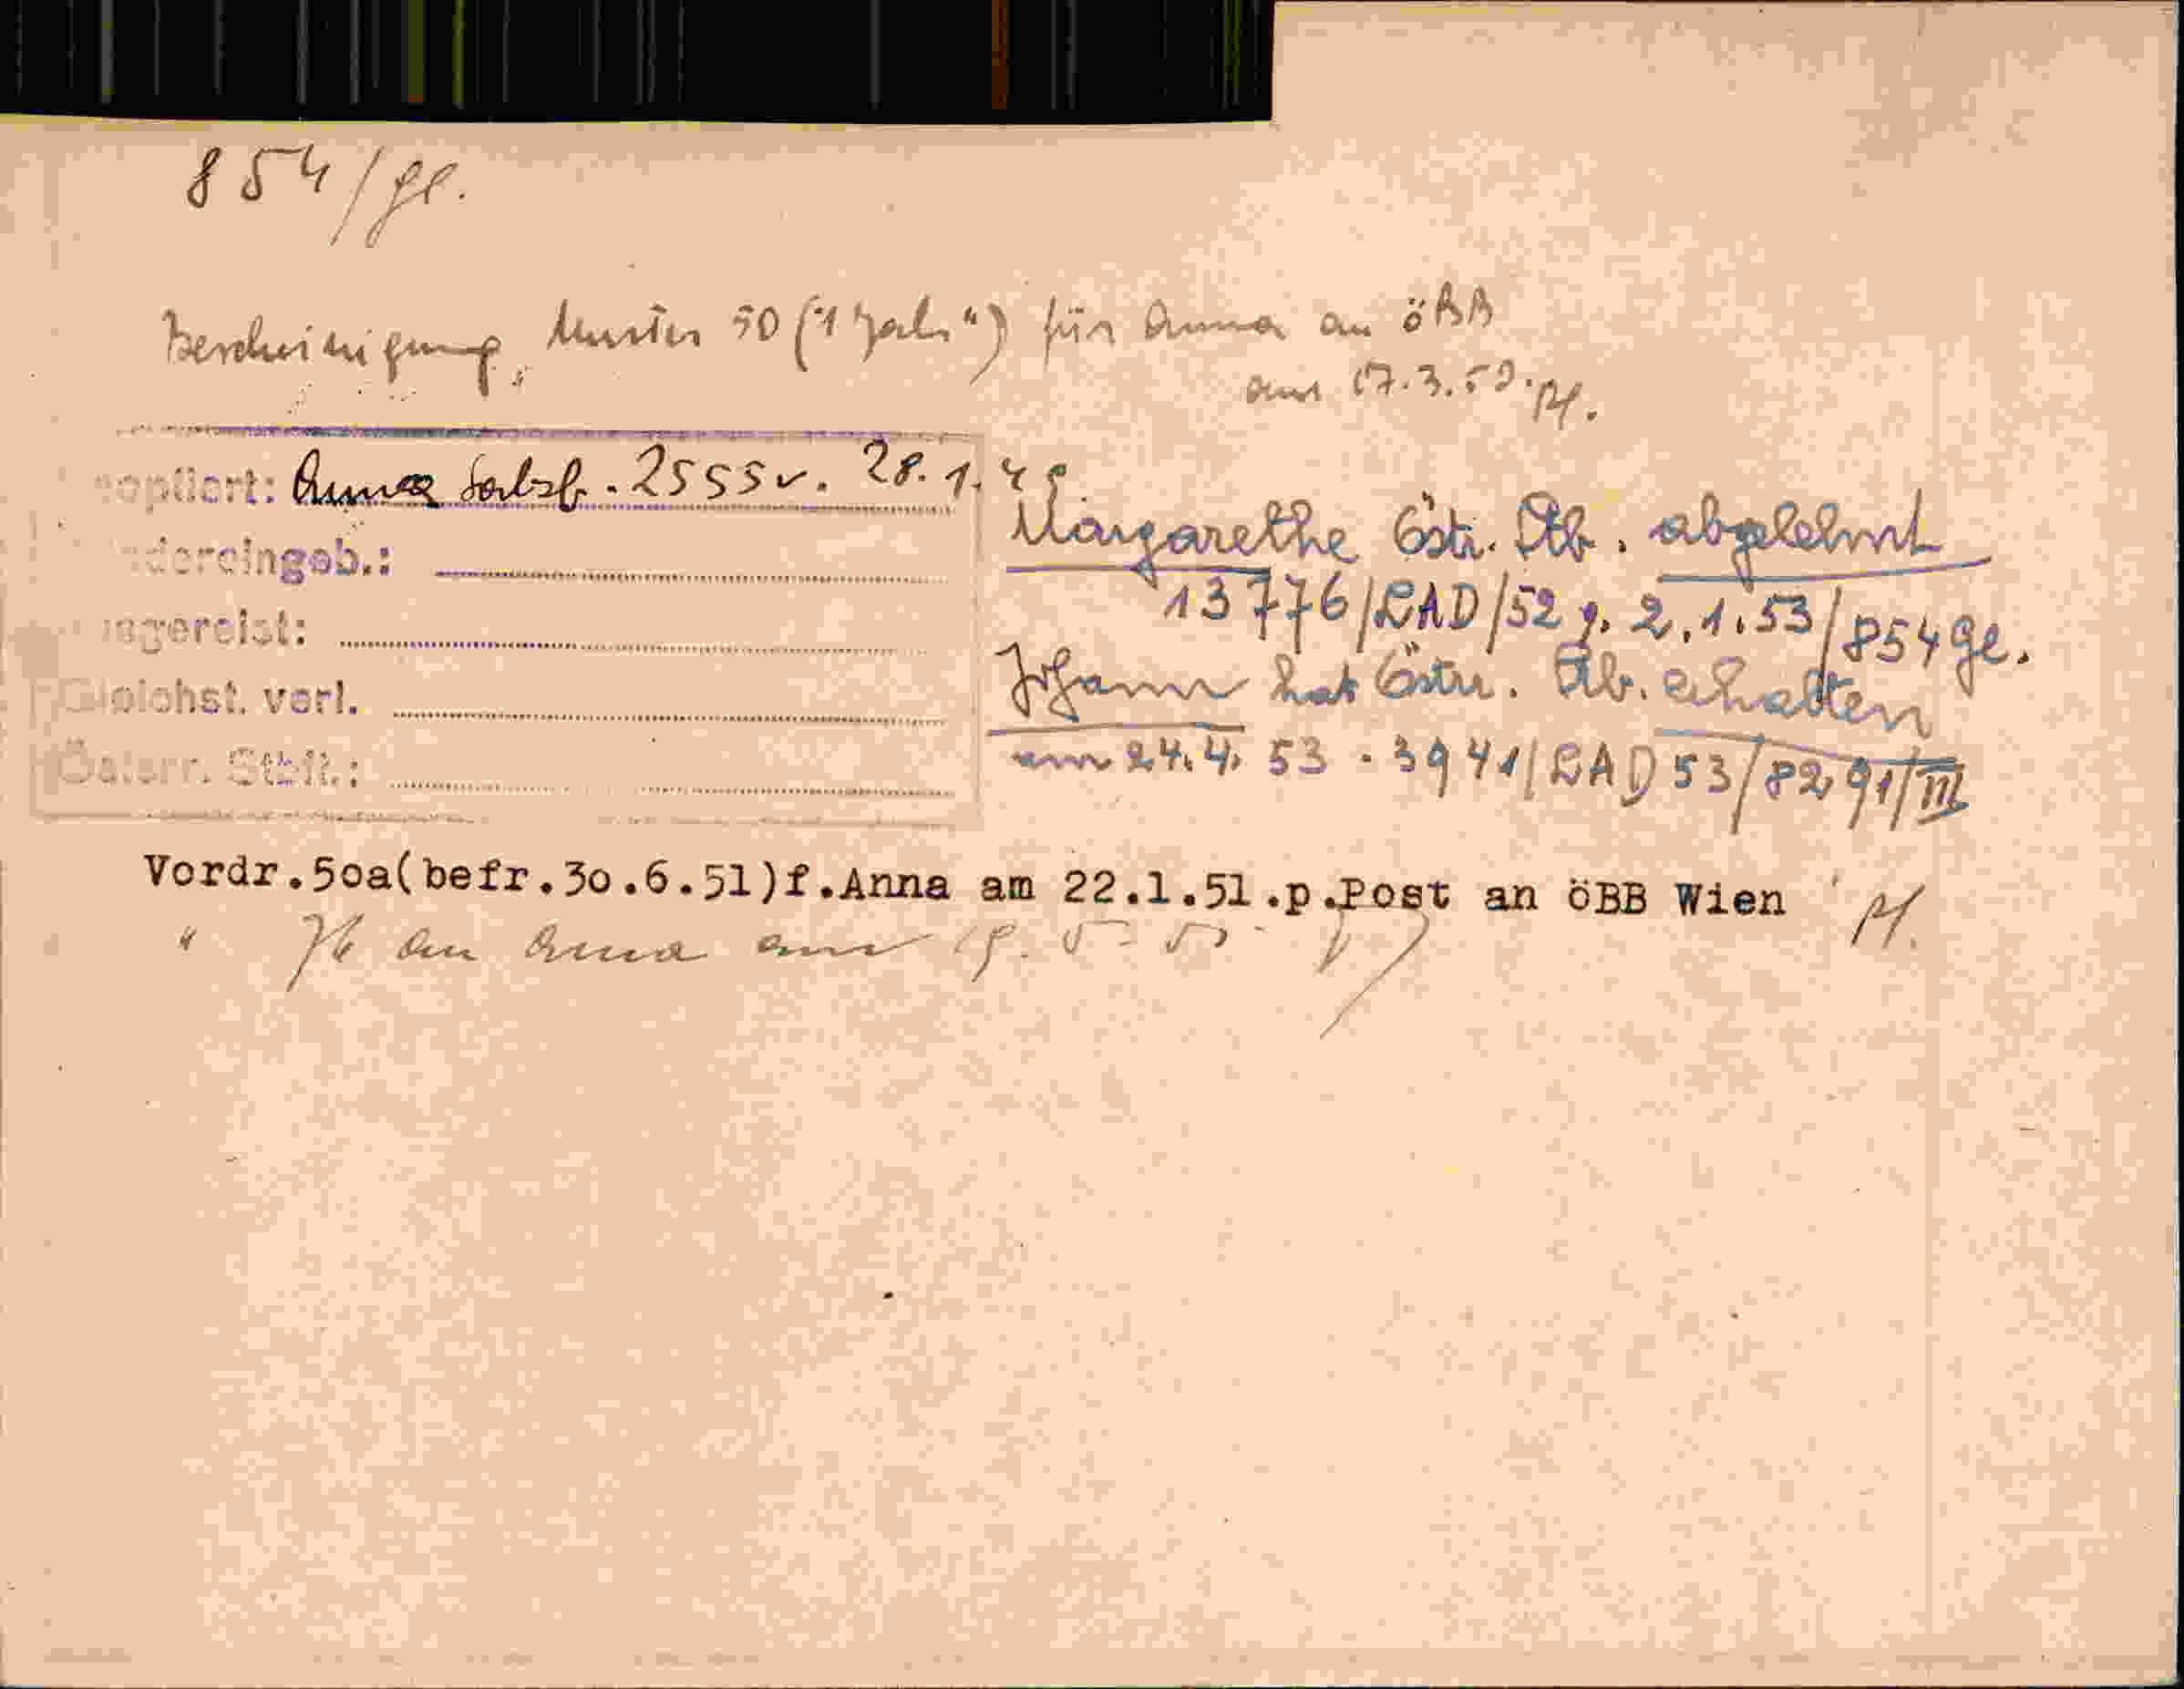 854/gl.
Bescheinigung „Muster 50 ("1 Jahr") für Anna an öBB
am 17.3.50. Pf.
optiert: Anna Salzb. 2555 v. 28.1.49
dereingeb.:
sgereist:
Gleichst. verl.
Österr. Stbft.:
Margarethe Östr. Stb. abgelehnt
13776/LAD/52 v. 2.1.53/854 Gl.
Johann hat Östr. Stb. erhalten
am 24.4.53 - 3941/LAD 53/8291/III
Vordr.50a(befr.30.6.51)f.Anna am 22.1.51.p.Post an öBB Wien Pf.
" an Anna am